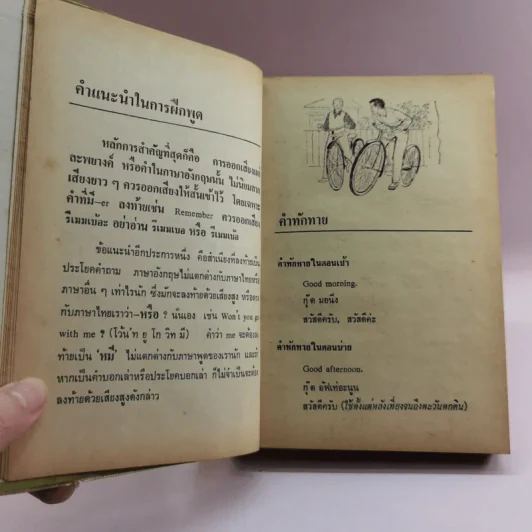 คำแนะนำในการฝึกพูด
หลักการสำคัญที่สุดก็คือ การออกเสียง
ละพยางค์ หรือคำในภาษาอังกฤษนั้น ไม่นิยม
เสียงยาว ๆ ควรออกเสียงให้สั้นเข้าไว้ โดยเฉพาะ
คำที่มี–er ลงท้ายเช่น Remember ควรออกเสียง
รีเมมเบ้อะ อย่าอ่าน รีเมมเบอ หรือ รีเมมเบ้อ
ข้อแนะนำอีกประการหนึ่ง คือสำเนียงที่ลงท้าย
ประโยคคำถาม ภาษาอังกฤษไม่แตกต่างกับภาษาไทยหรือ
ภาษาอื่น ๆ เท่าไรนัก ซึ่งมักจะลงท้ายด้วยเสียงสูง หรือ
กับภาษาไทยเราว่า–หรือ ? นั่นเอง เช่น Won't you go
with me ? (โว้น'ท ยู โก วิท มี) คำว่า me จะต้อง
ท้ายเป็น 'หมี' ไม่แตกต่างกับภาษาพูดของเรานัก และ
หากเป็นคำบอกเล่าหรือประโยคบอกเล่า ก็ไม่จำเป็นจะต้อง
ลงท้ายด้วยเสียงสูงดังกล่าว
คำทักทาย
คำทักทายในตอนเช้า
Good morning.
กู๊ด มอนิ่ง
สวัสดีครับ, สวัสดีค่ะ
คำทักทายในตอนบ่าย
Good afternoon.
กู๊ด อัฟเท่อะนูน
สวัสดีครับ (ใช้ตั้งแต่หลังเที่ยงจนถึงตะวันตกดิน)